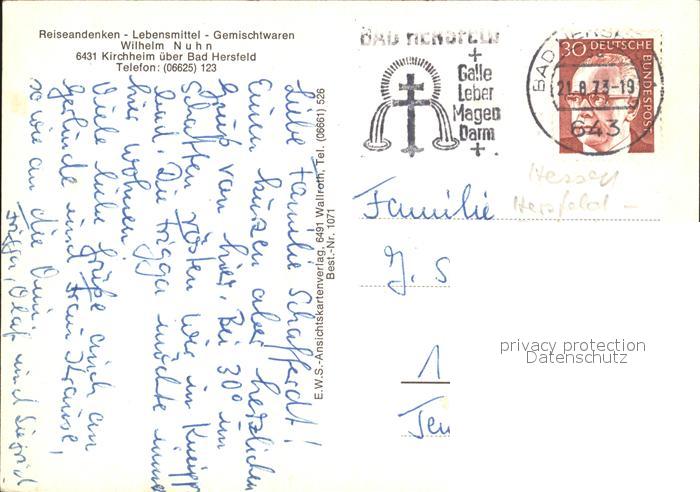 Reiseandenken - Lebensmittel - Gemischtwaren
Wilhelm Nuhn
6431 Kirchheim über Bad Hersfeld
Telefon: (06625) 123
Liebe Familie Schafferdt!
Einen kurzen aber herzlichen
Gruß von hier. Bei 30° im
Schatten rösten wir in Knüpp
und. Die Frigga möchte immer
hier wohnen.
Viele liebe Grüße auch an
Gerlinde und Frau Krause,
sowie an die Omi.
Frigga, Olaf und Sigrid
E.W.S.-Ansichtskartenverlag, 6491 Wallroth, Tel. (06661) 526
Best.-Nr. 1071
BAD HERSFELD
Galle
Leber
Magen
Darm
BAD HERSFELD
21.8.73-19
643
30 DEUTSCHE
BUNDESPOST
Hessen
Hersfeld -
Familie
J. S
1
Jen
privacy protection
Datenschutz